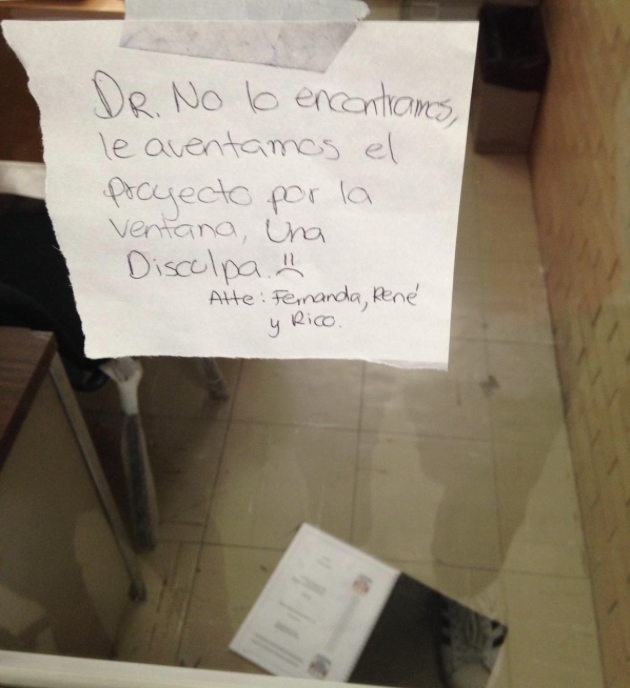 DR. No lo encontramos,
le aventamos el
proyecto por la
ventana, Una
Disculpa. :(
Atte: Fernanda, René
y Rico.